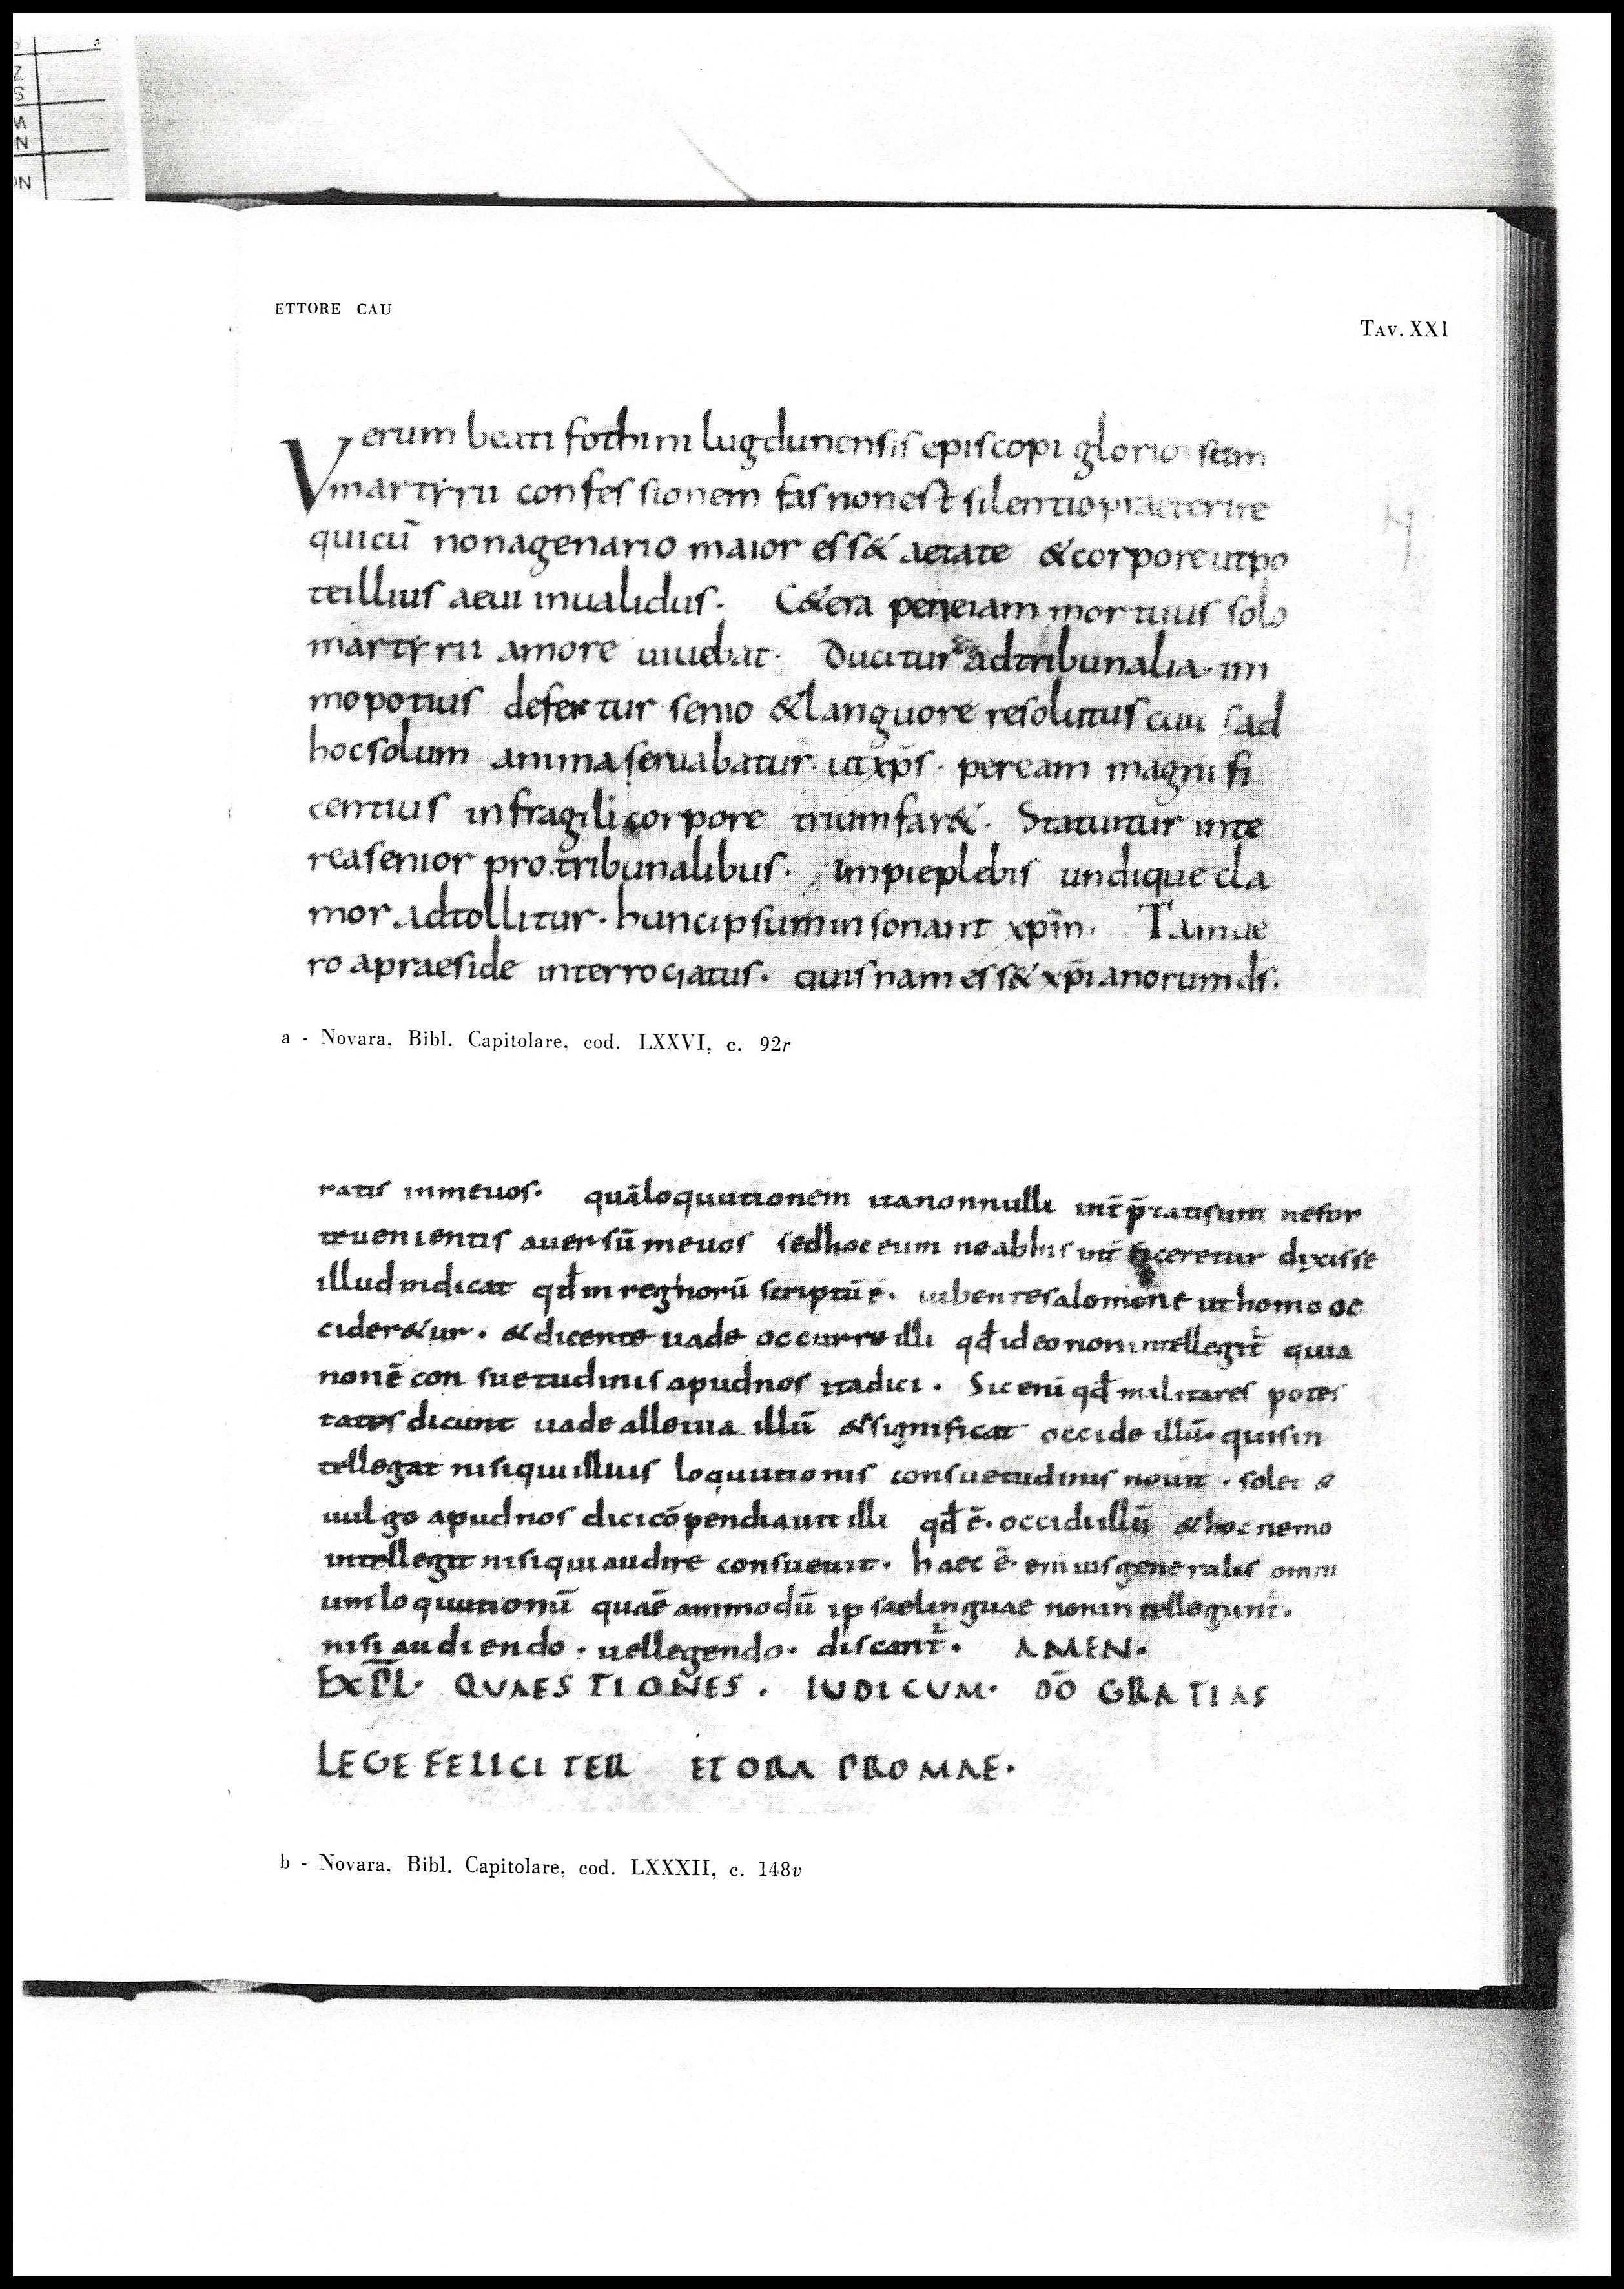 ETTORE CAU
TAV. XXI
Verum beati fothini lugdunensis episcopi glorio sam
martyrii confessionem fas non est silentio praeterire
quicū nonagenario maior ess& aetate &corpore utpo
te illius aeui inualidus. C&era pene iam mortuus solo
martyrii amore uiuebat. Ducitur ad tribunalia. im
mo potius defertur senio &languore resolutus cuius ad
hoc solum anima seruabatur. ut xp̄s. per eam magnifi
centius in fragili corpore triumfar&. Statuitur inte
rea senior pro.tribunalibus. Impie plebis undique cla
mor adtollitur. hunc ipsum insonant xpm̄. Tam ue
ro a praeside interrogatus. quisnam ess& xp̄ianorum ds̄.
a - Novara, Bibl. Capitolare, cod. LXXVI, c. 92r
ratis in me uos. quā loquutionem ita nonnulli int̄p̄tati sunt ne for
te uenientis auersū me uos sed hoc eum ne ab his int̄ficeretur dixisse
illud indicat qđ in regnorū scriptū ē. iubente salomone ut homo oc
cider&ur. &dicente uade occurre illi qđ ideo non intellegit̄ quia
non ē consuetudinis apud nos ita dici. Sic eni qđ militares potes
tates dicunt uade alleuia illū &significat occide illū. quis in
tellegat nisi qui illius loquutionis consuetudinis nouit. solet &
uulgo apud nos dici cōpendiauit illi qđ ē. occidit illū &hoc nemo
intellegit nisi qui audire consueuit. haec ē. eni uis generalis omni
um loquutionū quaē ammodū ipsae linguae non intellegunt̄.
nisi audiendo. uel legendo. discant̄. AMEN.
EXPL̄. QUAESTIONES. IUDICUM. DŌ GRATIAS
LEGE FELICITER ET ORA PRO MAE.
b - Novara, Bibl. Capitolare, cod. LXXXII, c. 148v